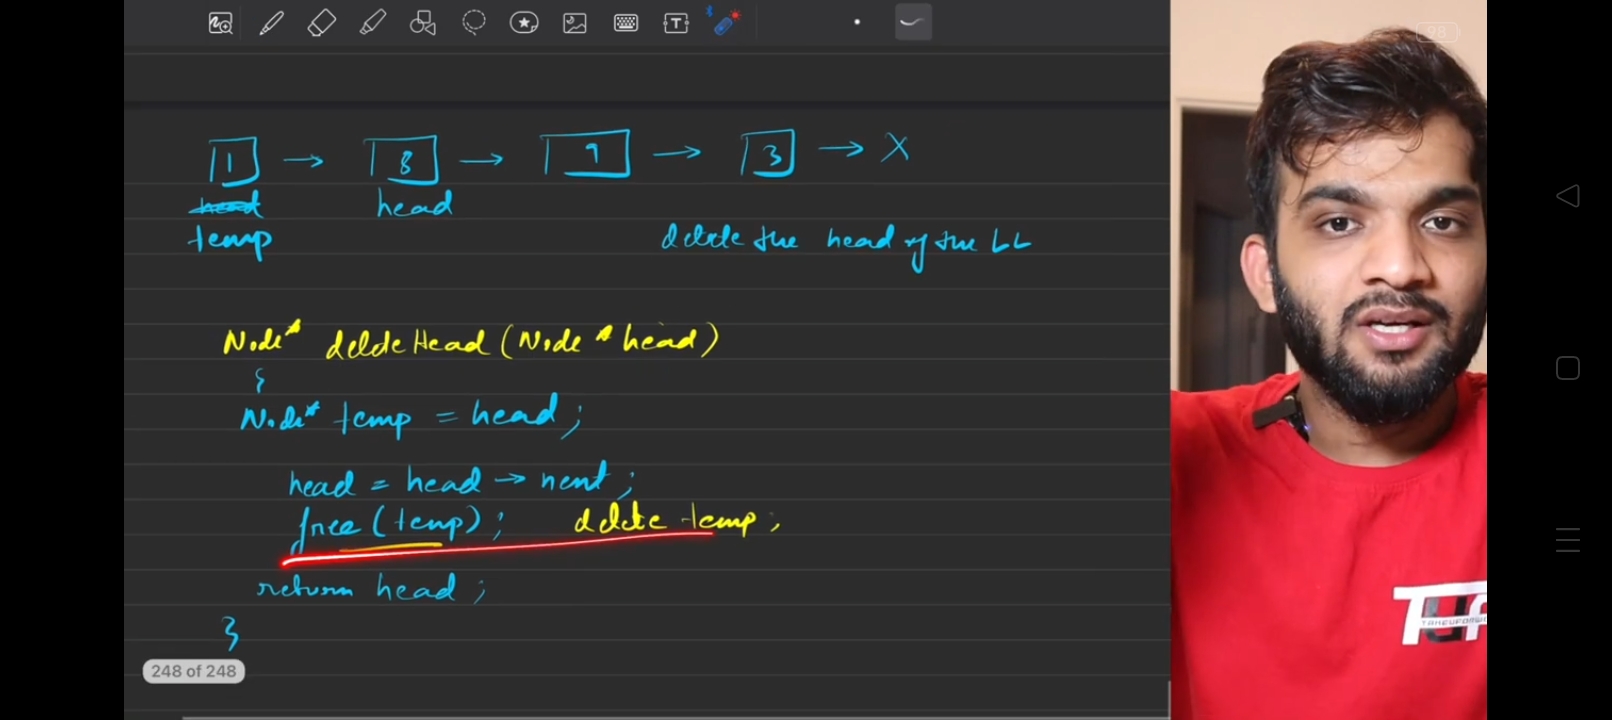 1 → 8 → 9 → 3 → X
head head
temp delete the head of the LL
Node* deleteHead(Node* head)
{
Node* temp = head;
head = head → next;
free(temp); delete temp;
return head;
}
248 of 248
98
TUF
TAKEUFORWARD